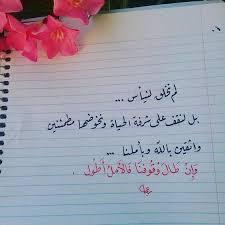 لم نخلق لنيأس ...
بل لنقف على شرفة الحياة ونخوضها مطمئنين
واثقين بالله وبأملنا ...
فإن طال وقوفنا فالأمل أطول .